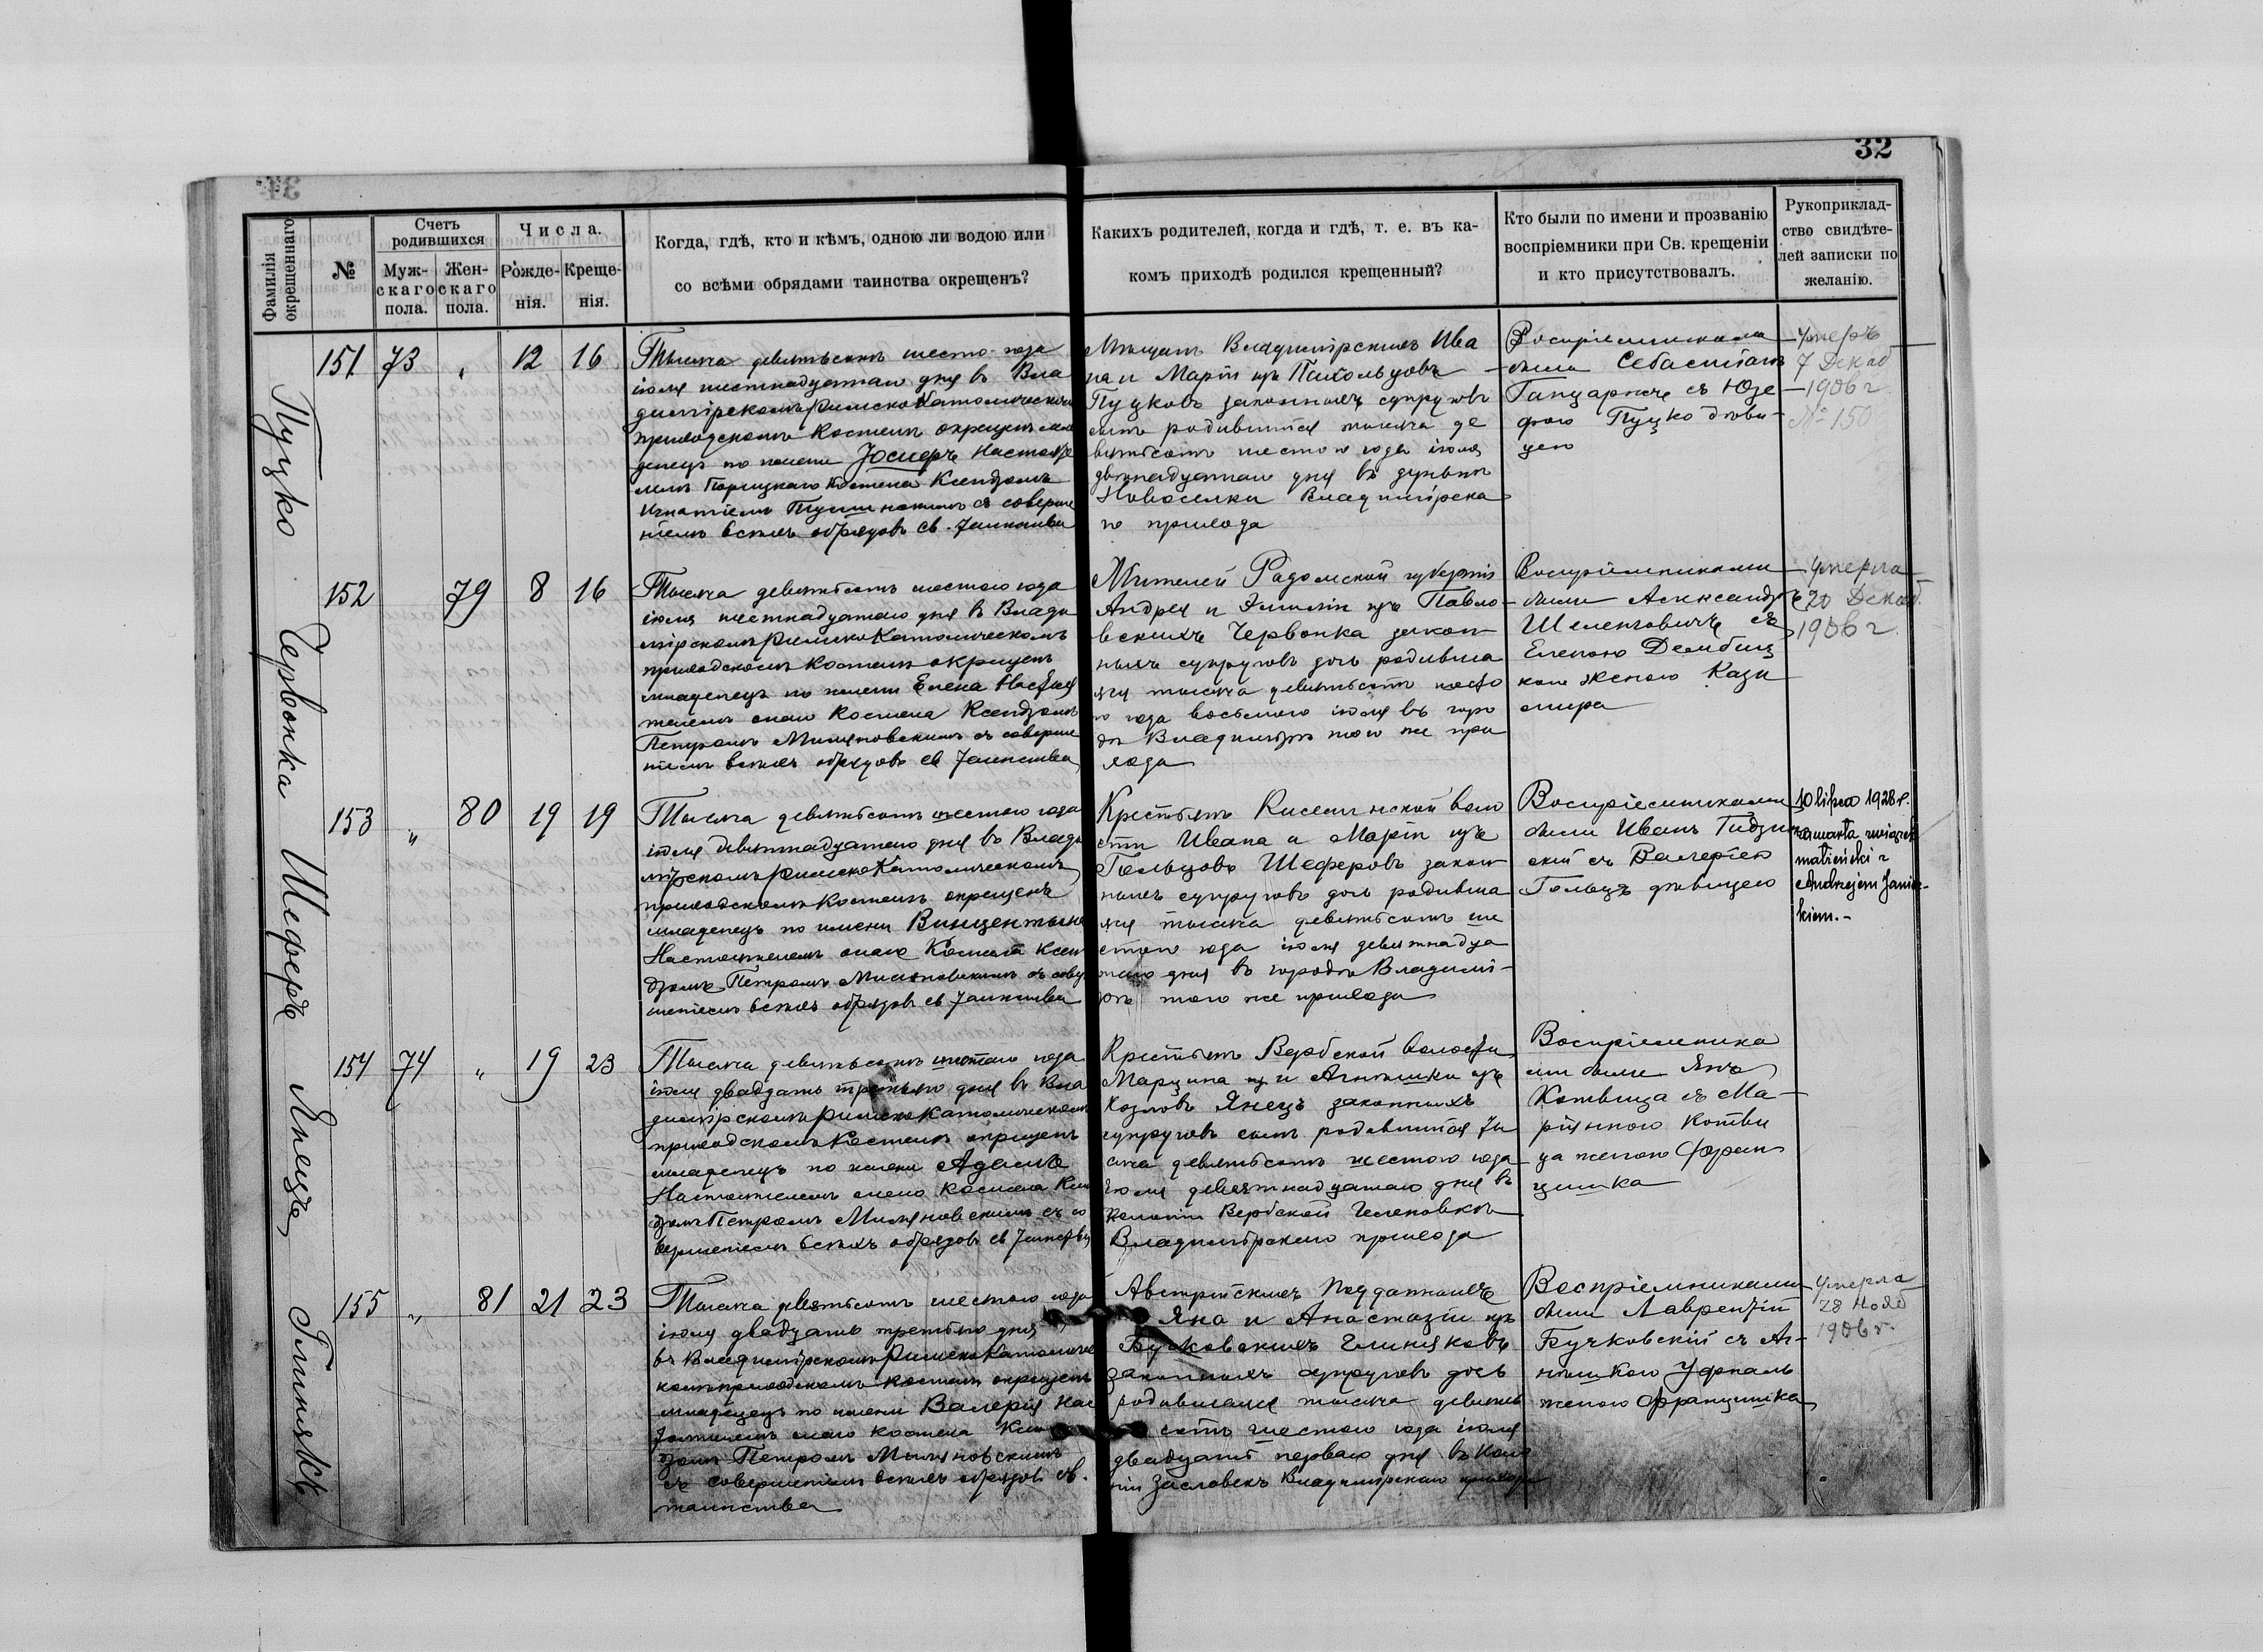 32
Фамилія окрещеннаго
№
Счетъ родившихся
Муж-
скаго
пола.
Жен-
скаго
пола.
Числа.
Рожде-
нія.
Креще-
нія.
Когда, гдѣ, кто и кѣмъ, одною ли водою или
со всѣми обрядами таинства окрещенъ?
Какихъ родителей, когда и гдѣ, т. е. въ ка-
комъ приходѣ родился крещенный?
Кто были по имени и прозванію
воспріемники при Св. крещеніи
и кто присутствовалъ.
Рукоприклад-
ство свидѣте-
лей записки по
желанію.
Пуцко
151 73 „ 12 16
Тысяча девятьсотъ шесто- года
іюля шестнадцатаго дня въ Вла
димірскомъ Римско Католическомъ
приходскомъ Костелѣ окрещенъ мла
денецъ по имени Юсифъ Настояте
лемъ Порицкаго Костела Ксендзомъ
Игнатіемъ съ соверше
ніемъ всѣхъ обрядовъ св. Таинства
Мѣщанъ Владимірскихъ Ива
на и Маріи изъ
Пуцковъ законныхъ супруговъ
сынъ родившійся тысяча де
вятьсотъ шестого года іюля
двѣнадцатаго дня въ деревнѣ
Новоселки Владимірска
го прихода
Воспріемниками
были Себастіанъ
съ Юзе
фою Пуцко дѣви-
цею
Умеръ
7 Декаб
1906 г
№ 150
Червонка
152 79 8 16
Тысяча девятьсотъ шестого года
іюля шестнадцатаго дня въ Влади
мірскомъ Римско Католическомъ
приходскомъ Костелѣ окрещенъ
младенецъ по имени Елена Настоя
телемъ онаго Костела Ксендзомъ
Петромъ Миляновскимъ съ соверше
ніемъ всѣхъ обрядовъ св Таинства
Жителей Радомской губерніи
Андрея и Эмиліи изъ Павло-
вскихъ Червонка закон
ныхъ супруговъ дочь родивша
яся тысяча девятьсотъ шесто
го года восьмого іюля въ горо
дѣ Владимірѣ того же при
хода
Воспріемниками
были Александръ
Шеленговичъ съ
Еленою Дембиц
кою женою Кази
мира
Умерла
20 Декаб.
1906 г.
Шеферъ
153 „ 80 19 19
Тысяча девятьсотъ шестого года
іюля девятнадцатаго дня въ Влади
мірскомъ Римско Католическомъ
приходскомъ Костелѣ окрещенъ
младенецъ по имени Винцентына
Настоятелемъ онаго Костела Ксен
дзомъ Петромъ Милановскимъ съ совер
шеніемъ всѣхъ обрядовъ св Таинства
Крестьянъ Киселинской воло
сти Ивана и Маріи изъ
Гольцовъ Шеферовъ закон
ныхъ супруговъ дочь родивша
яся тысяча девятьсотъ ше
стого года іюля девятнадца
таго дня въ городѣ Владимі-
рѣ того же прихода
Воспріемниками
были Иванъ Гидзин
скій съ Валеріею
Гольцъ дѣвицею
10 lipca 1928 r.
zawarła związek
małżeński z
Andrzejem Janic-
kim.-
Янецъ
154 74 „ 19 23
Тысяча девятьсотъ шестого года
іюля двадцать третьяго дня въ Вла
димірскомъ Римско Католическомъ
приходскомъ Костелѣ окрещенъ
младенецъ по имени Адамъ
Настоятелемъ онаго Костела Ксен
дзомъ Петромъ Милановскимъ съ со
вершеніемъ всѣхъ обрядовъ св Таинства
Крестьянъ Вербской волости
Марцина и Агнѣшки изъ
Козловъ Янецъ законныхъ
супруговъ сынъ родившійся ты
сяча девятьсотъ шестого года
іюля девятнадцатаго дня въ
колоніи Вербской
Владимірскаго прихода
Воспріемника
ми были Янъ
Котвица съ Ма-
ріянною Котви
ца женою Фран
цишка
Глинякъ
155 „ 81 21 23
Тысяча девятьсотъ шестого года
іюля двадцать третьяго дня
въ Владимірскомъ Римско Католичес
комъ приходскомъ костелѣ окрещенъ
младенецъ по имени Валерія Нас
тоятелемъ онаго костела Ксен
дзомъ Петромъ Милановскимъ
съ совершеніемъ всѣхъ обрядовъ св.
таинства
Австрійскихъ подданныхъ
Яна и Анастазіи изъ
Бучковскихъ Глиняковъ
законныхъ супруговъ дочь
родившаяся тысяча девять
сотъ шестого года іюля
двадцать перваго дня въ коло
ніи Владимірскаго прихода
Воспріемниками
были Лаврентій
Бучковскій съ Аг-
нѣшкою
женою Францишка
Умерла
28 Нояб
1906 г.